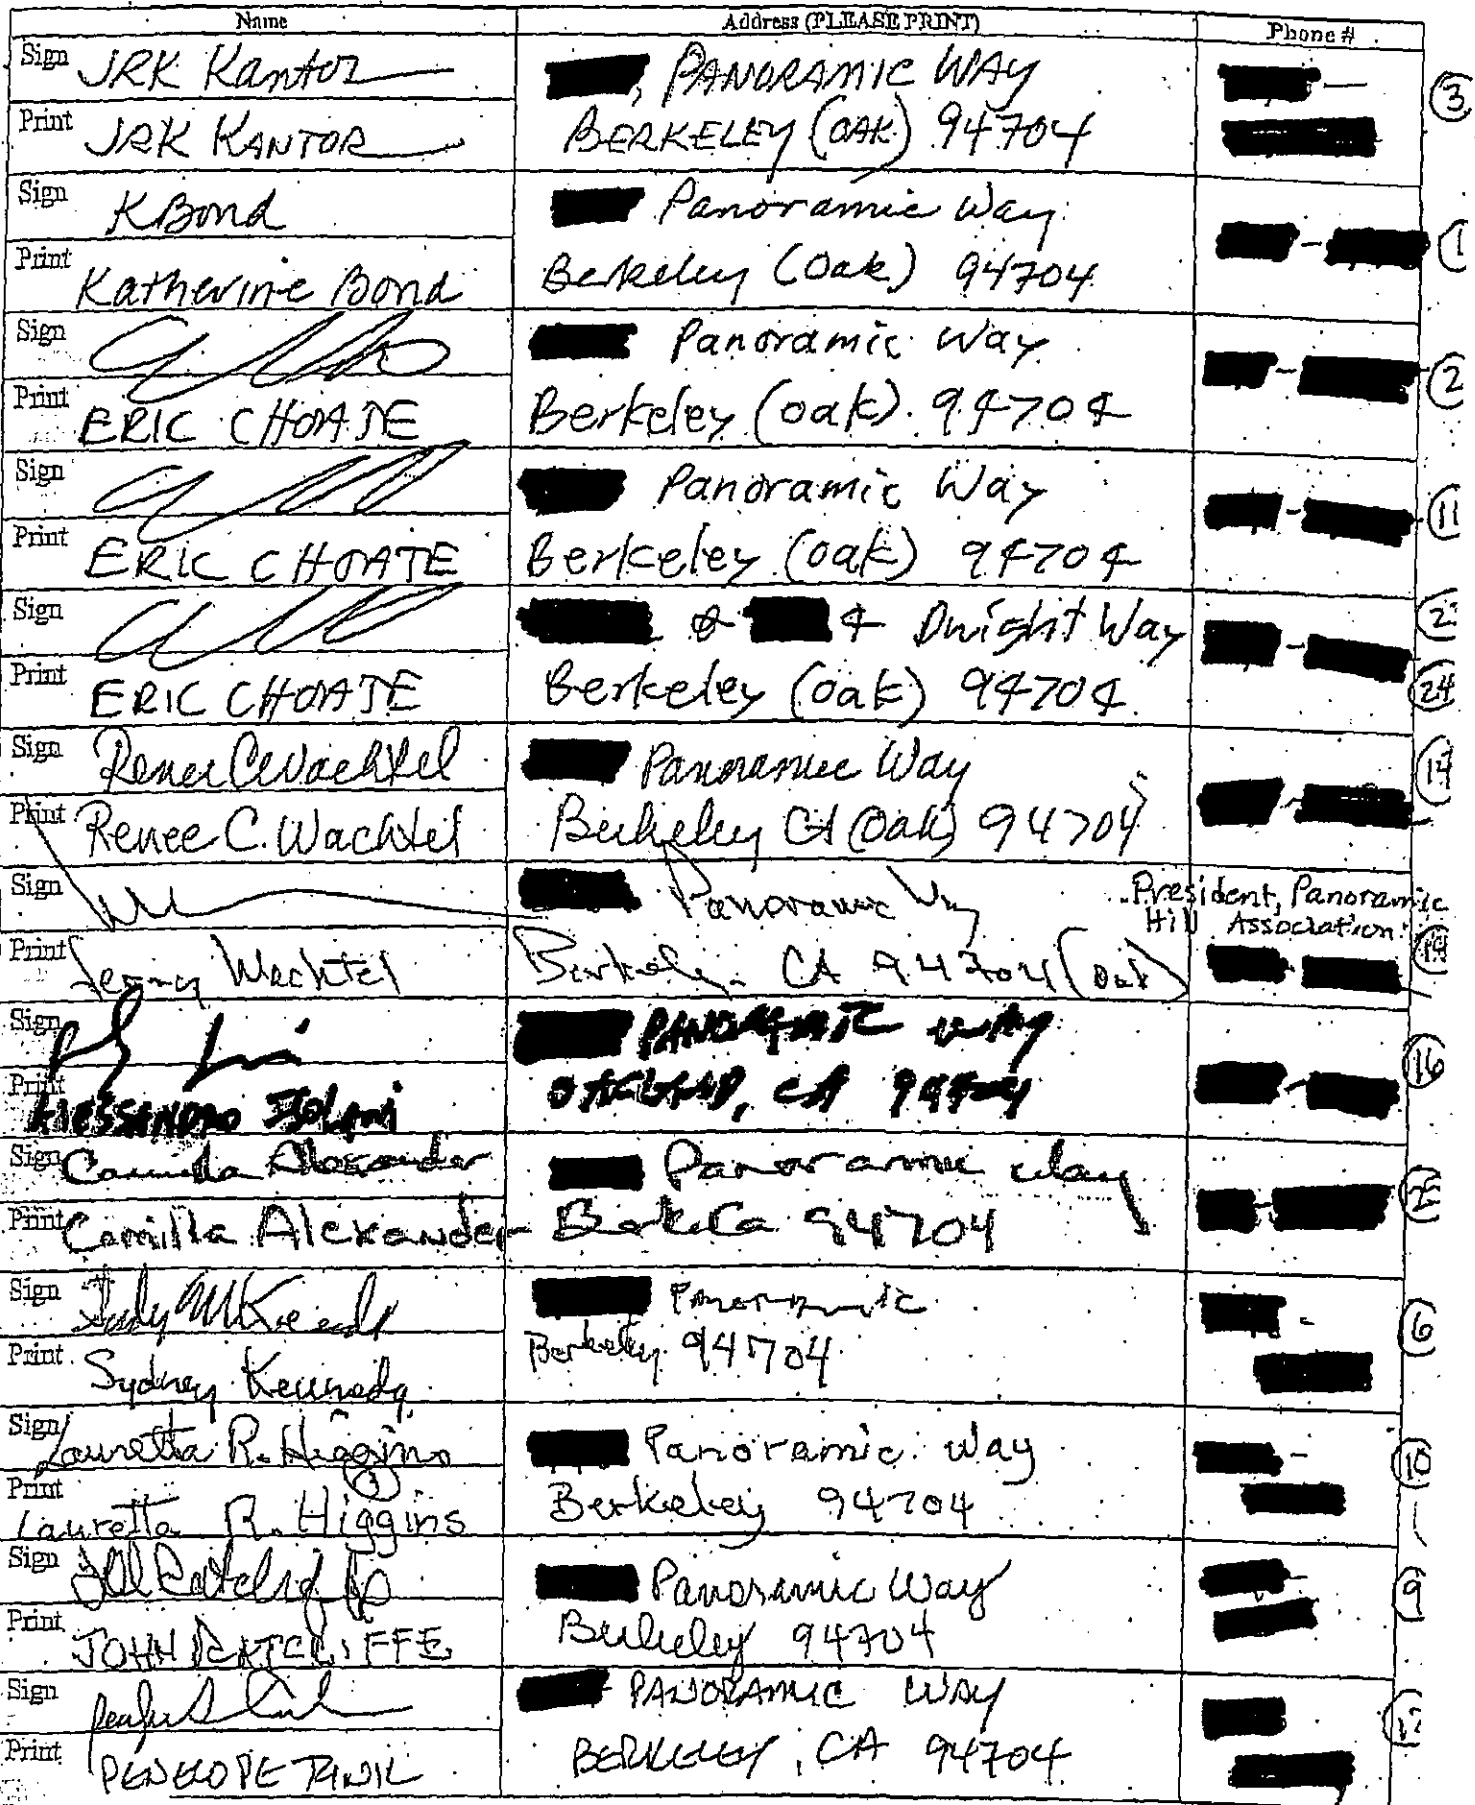 Name Address (PLEASE PRINT) Phone #
Sign JRK Kantor , PANORAMIC WAY
3
Print JRK KANTOR BERKELEY (OAK) 94704
Sign K Bond Panoramic Way
1
Print Katherine Bond Berkeley (Oak) 94704
Sign Panoramic Way
2
Print ERIC CHOATE Berkeley (oak) 94704
Sign Panoramic Way
11
Print ERIC CHOATE Berkeley (oak) 94704
Sign & & Dwight Way
Print ERIC CHOATE Berkeley (oak) 94704
24
Sign Renee C Wachtel Panoramic Way
Print Renee C. Wachtel Berkeley CA (Oak) 94704
Sign Panoramic Way President, Panoramic
Hill Association
Print Wachtel Berkeley CA 94704 (Oak)
Sign PANORAMIC WAY
16
Print ALESSANDRO OAKLAND, CA 94704
Sign Camilla Alexander Panoramic Way
Print Camilla Alexander Berk Ca 94704
Sign Panoramic
6
Print Sydney Kennedy Berkeley 94704
Sign Lauretta R. Higgins Panoramic Way
10
Print Lauretta R. Higgins Berkeley 94704
Sign Panoramic Way
9
Print JOHN RATCLIFFE Berkeley 94704
Sign PANORAMIC WAY
Print PENELOPE BERKELEY, CA 94704